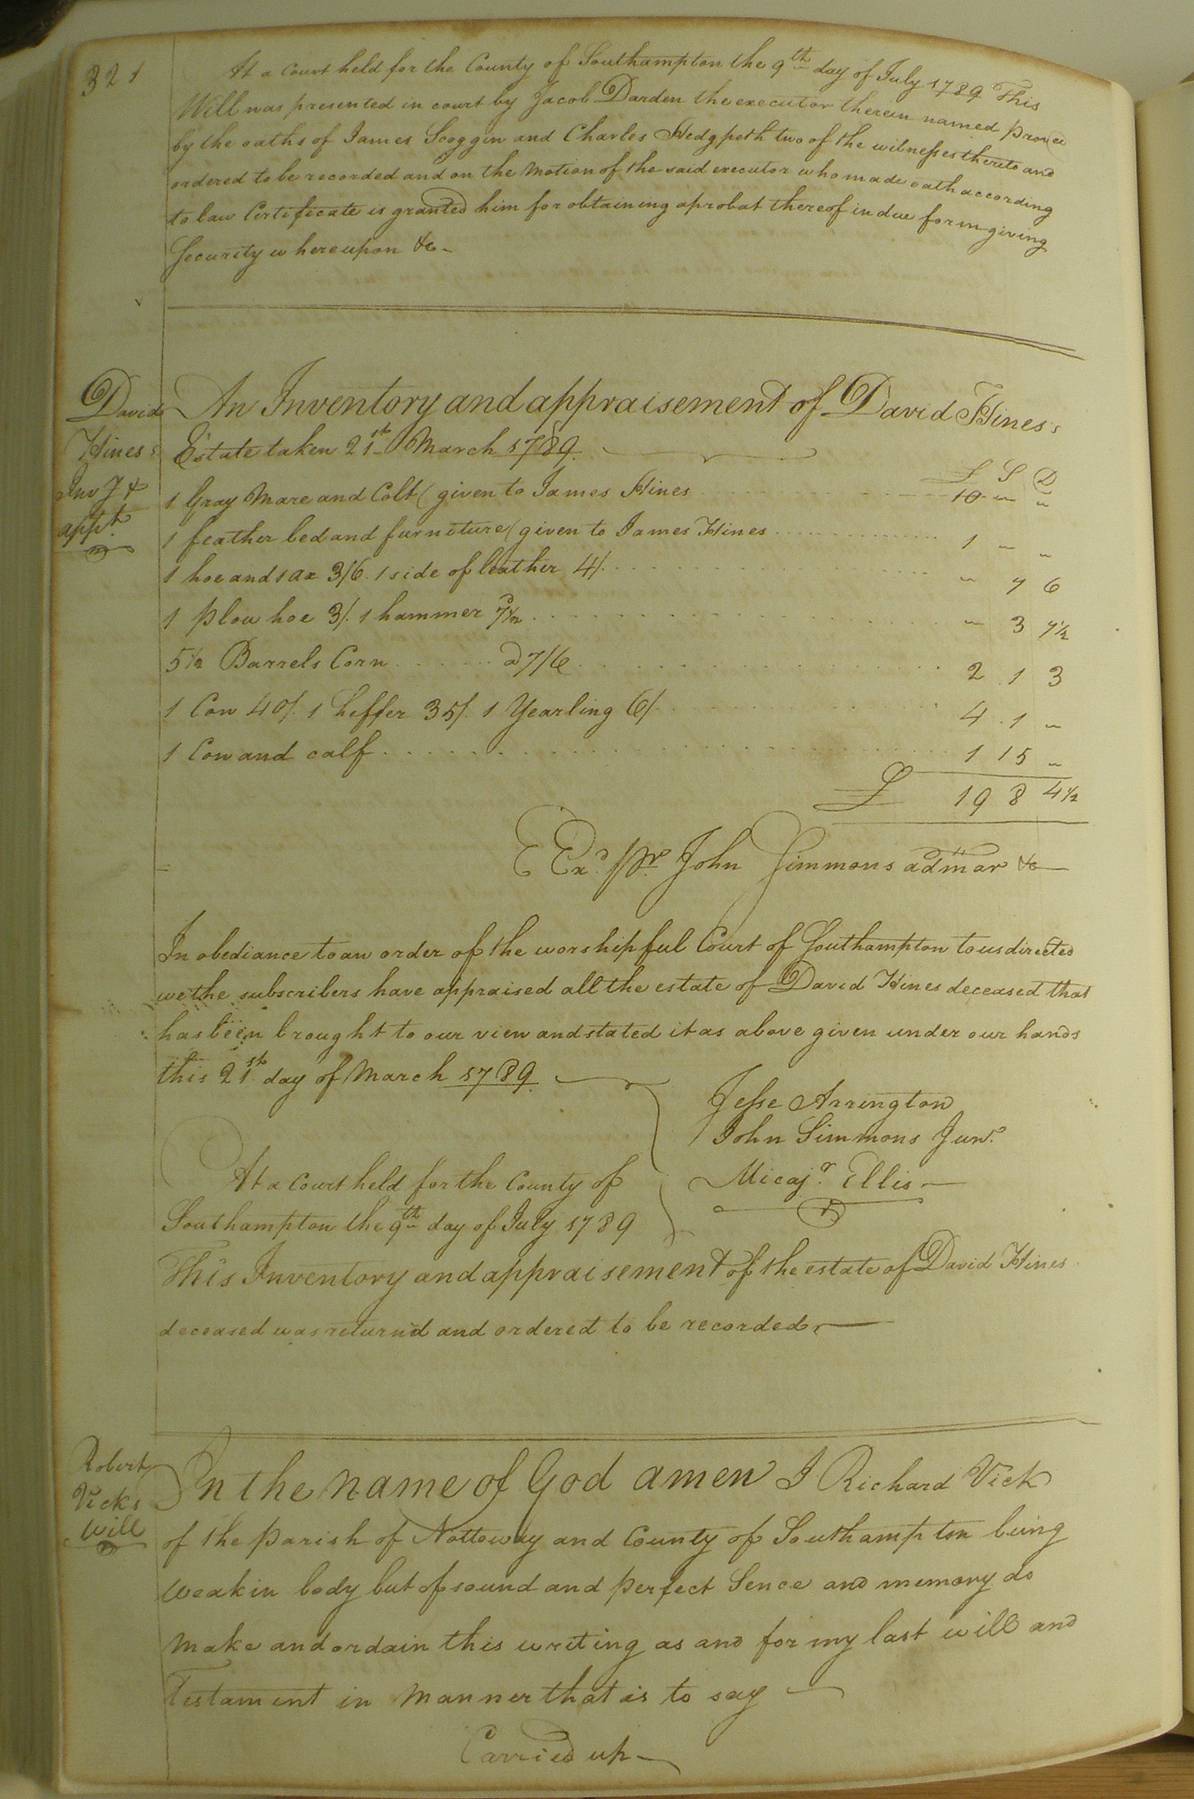 321
At a Court held for the County of Southampton the 9th day of July 1789 This
Will was presented in court by Jacob Darden the executor therein named proved
by the oaths of James Scoggin and Charles Hedgpeth two of the witnesses thereto and
ordered to be recorded and on the motion of the said executor who made oath according
to law Certificate is granted him for obtaining a probat thereof in due form giving
Security whereupon &c
David
Hines's
Inv.y &
app.t
An Inventory and appraisement of David Hines's
Estate taken 21st March 1789
£ S D
1 Gray Mare and Colt ( given to James Hines 10 " "
1 feather bed and furniture ( given to James Hines 1 " "
1 hoe and 1 ax 3/6 1 side of leather 4/. " 7 6
1 plow hoe 3/. 1 hammer 7½d " 3 7½
5½ Barrels Corn a 7/6 2 1 3
1 Cow 40/. 1 heffer 35/. 1 Yearling 6/. 4 1 "
1 Cow and calf 1 15 "
£ 19 8 4½
E Exd pr John Simmons admar &c
In obediance to an order of the worshipful Court of Southampton to us directed
we the subscribers have appraised all the estate of David Hines deceased that
has been brought to our view and stated it as above given under our hands
this 21st day of March 1789
Jesse Arrington
John Simmons Junr
Micajr Ellis
At a Court held for the County of
Southampton the 9th day of July 1789
This Inventory and appraisement of the estate of David Hines
deceased was returnd and ordered to be recorded
Robert
Vicks
Will
In the name of God amen I Richard Vick
of the parish of Nottoway and County of Southampton being
weak in body but of sound and perfect Sence and memory do
make and ordain this writing as and for my last will and
Testament in manner that is to say
Carried up